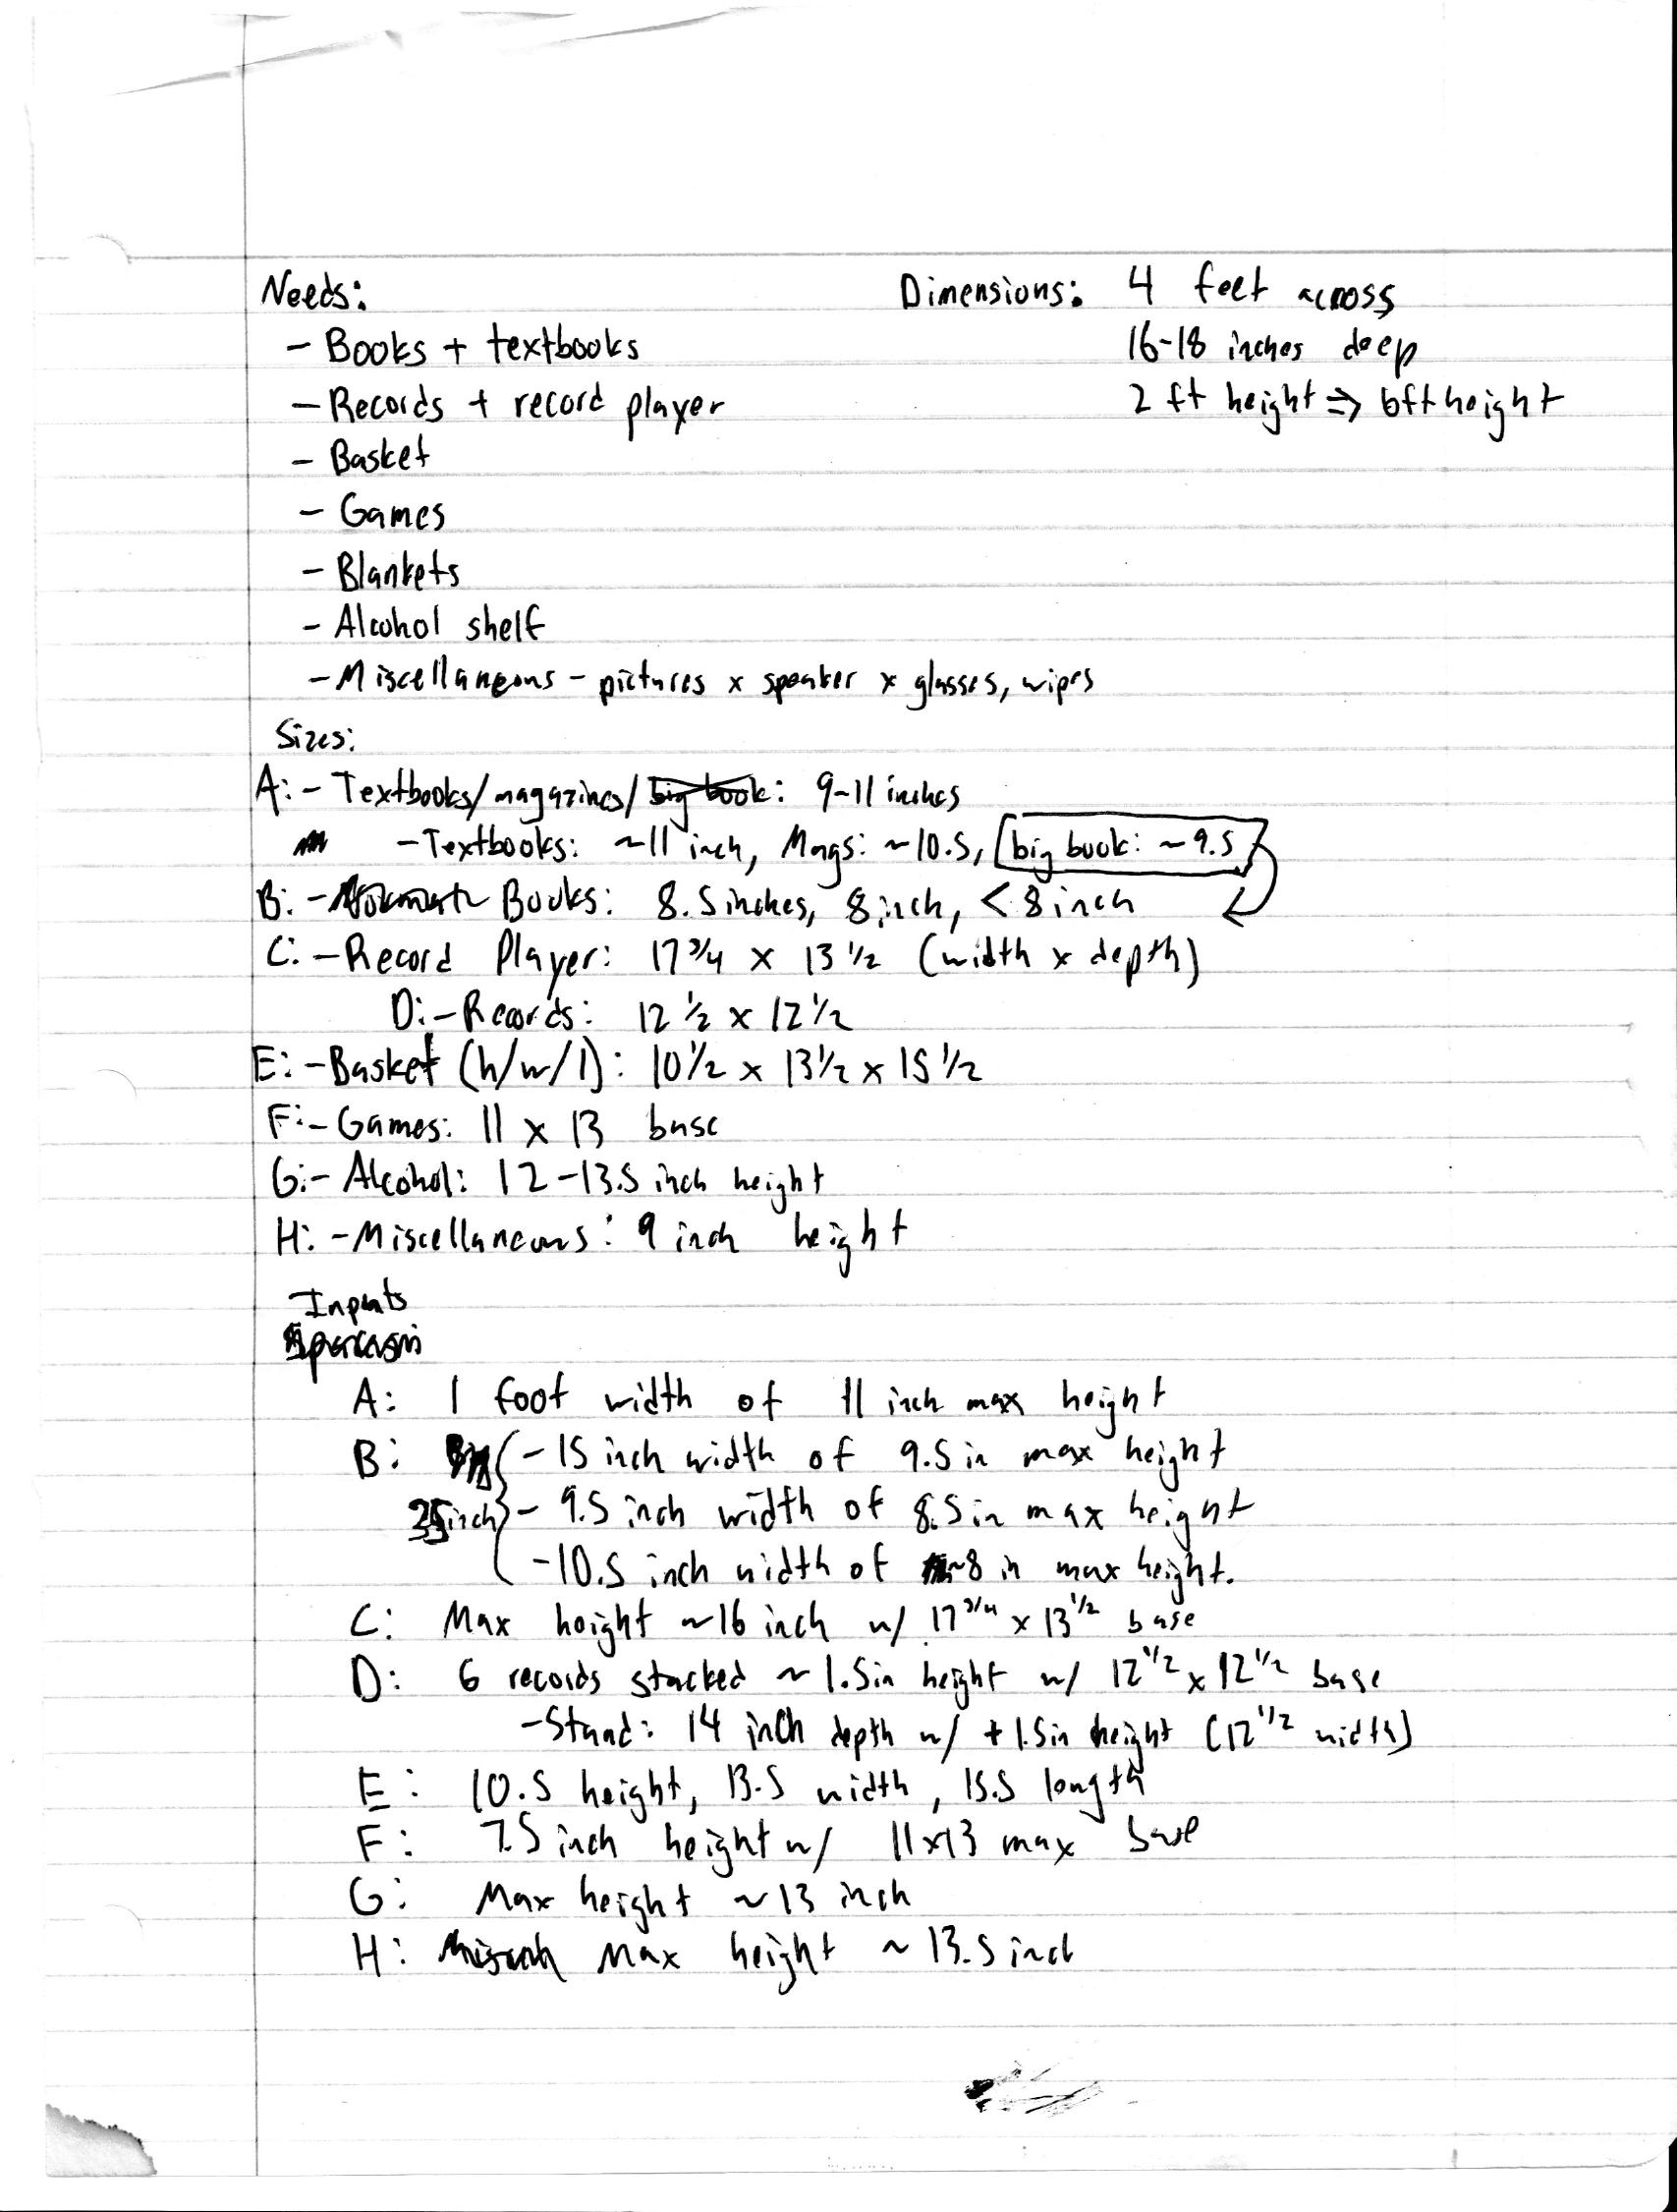 Needs:
- Books + textbooks
- Records + record player
- Basket
- Games
- Blankets
- Alcohol shelf
- Miscellaneous - pictures x speaker x glasses, wipes
Dimensions: 4 feet across
16-18 inches deep
2 ft height => 6ft height
Sizes:
A: - Textbooks/magazines/big book: 9-11 inches
- Textbooks: ~11 inch, Mags: ~10.5, big book: ~9.5
B: - Books: 8.5 inches, 8 inch, < 8 inch
C: - Record Player: 17 3/4 x 13 1/2 (width x depth)
D: - Records: 12 1/2 x 12 1/2
E: - Basket (h/w/l): 10 1/2 x 13 1/2 x 15 1/2
F: - Games: 11 x 13 base
G: - Alcohol: 12-13.5 inch height
H: - Miscellaneous: 9 inch height
Inputs
A: 1 foot width of 11 inch max height
B: - 15 inch width of 9.5 in max height
- 9.5 inch width of 8.5 in max height
inch
- 10.5 inch width of ~8 in max height.
C: Max height ~16 inch w/ 17 3/4 x 13 1/2 base
D: 6 records stacked ~ 1.5in height w/ 12 1/2 x 12 1/2 base
- Stand: 14 inch depth w/ + 1.5in height (12 1/2 width)
E: 10.5 height, 13.5 width, 15.5 length
F: 7.5 inch height w/ 11x13 max base
G: Max height ~13 inch
H: Max height ~ 13.5 inch